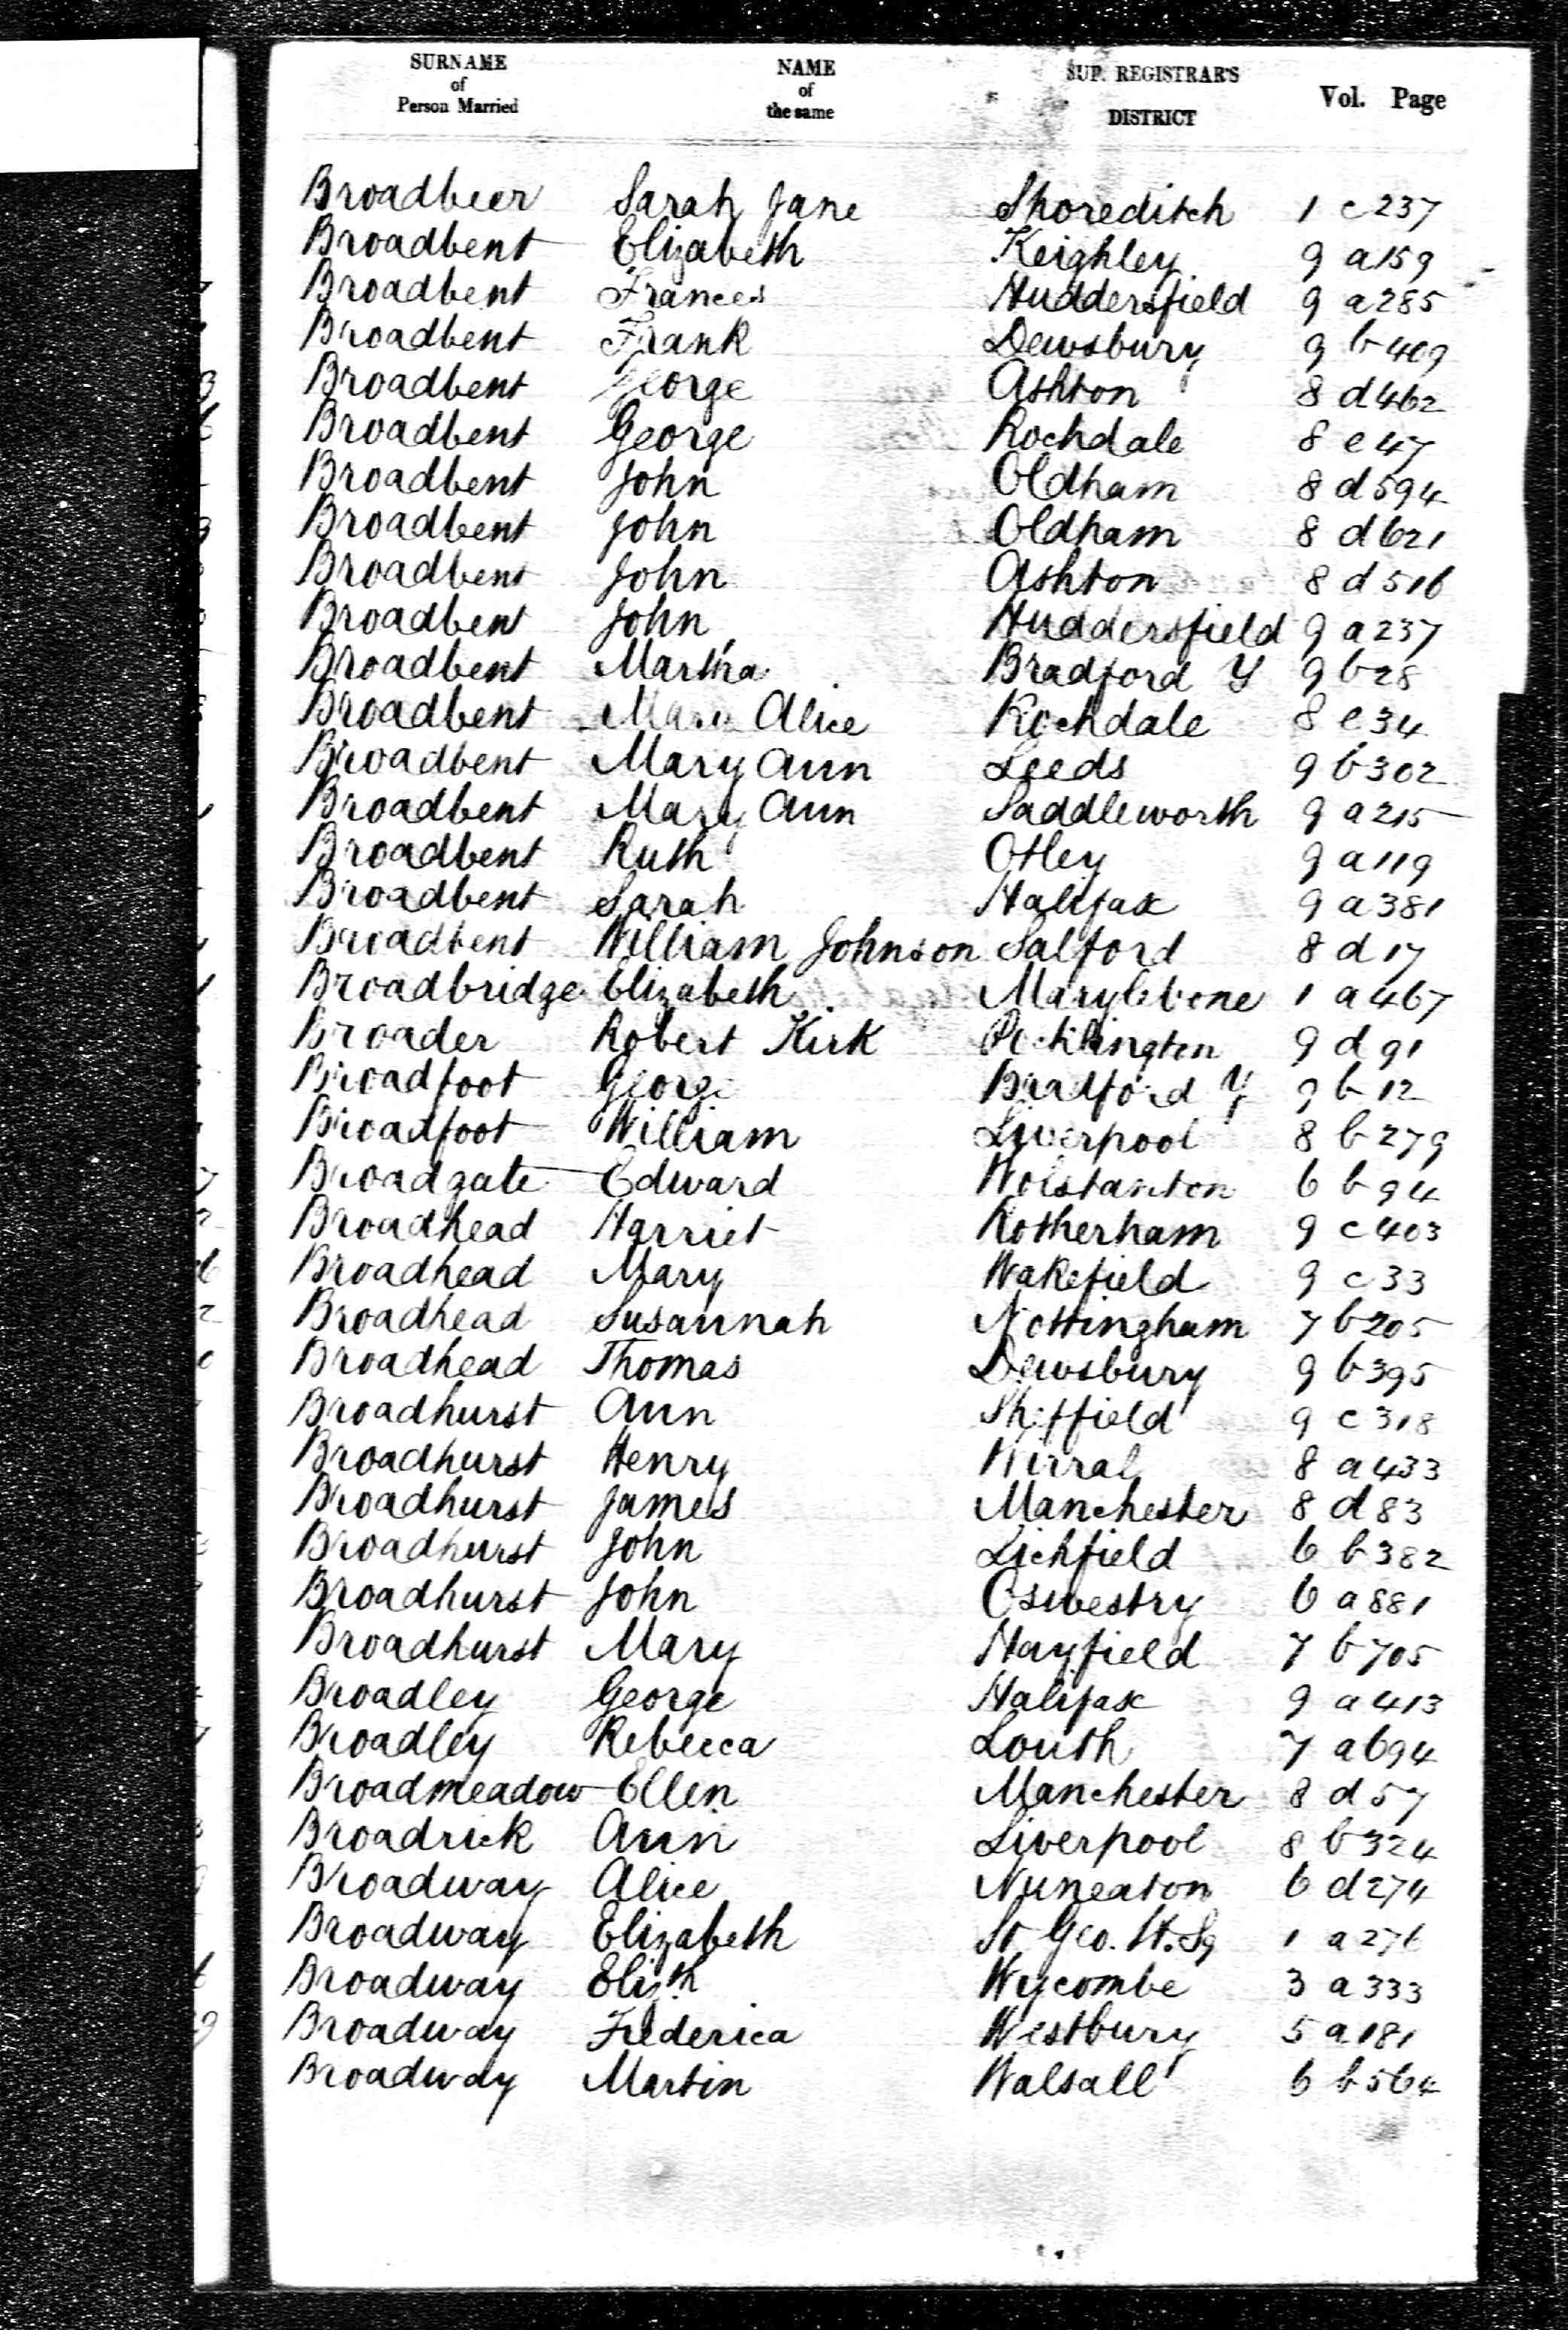 SURNAME of Person Married NAME of the same SUP. REGISTRAR'S DISTRICT Vol. Page
Broadbeer Sarah Jane Shoreditch 1 c 237
Broadbent Elizabeth Keighley 9 a 159
Broadbent Frances Huddersfield 9 a 285
Broadbent Frank Dewsbury 9 b 409
Broadbent George Ashton 8 d 462
Broadbent George Rochdale 8 e 47
Broadbent John Oldham 8 d 594
Broadbent John Oldham 8 d 621
Broadbent John Ashton 8 d 516
Broadbent John Huddersfield 9 a 237
Broadbent Martha Bradford Y 9 b 28
Broadbent Mary Alice Rochdale 8 e 34
Broadbent Mary Ann Leeds 9 b 302
Broadbent Mary Ann Saddleworth 9 a 215
Broadbent Ruth Otley 9 a 119
Broadbent Sarah Halifax 9 a 381
Broadbent William Johnson Salford 8 d 17
Broadbridge Elizabeth Marylebone 1 a 467
Broader Robert Kirk Pocklington 9 d 91
Broadfoot George Bradford Y 9 b 12
Broadfoot William Liverpool 8 b 279
Broadgate Edward Wolstanton 6 b 94
Broadhead Harriet Rotherham 9 c 403
Broadhead Mary Wakefield 9 c 33
Broadhead Susannah Nottingham 7 b 205
Broadhead Thomas Dewsbury 9 b 395
Broadhurst Ann Sheffield 9 c 318
Broadhurst Henry Wirral 8 a 433
Broadhurst James Manchester 8 d 83
Broadhurst John Lichfield 6 b 382
Broadhurst John Oswestry 6 a 881
Broadhurst Mary Hayfield 7 b 705
Broadley George Halifax 9 a 413
Broadley Rebecca Louth 7 a 694
Broadmeadow Ellen Manchester 8 d 57
Broadrick Ann Liverpool 8 b 324
Broadway Alice Nuneaton 6 d 274
Broadway Elizabeth St Geo. H. Sq 1 a 276
Broadway Elizth Wycombe 3 a 333
Broadway Frederica Westbury 5 a 181
Broadway Martin Walsall 6 b 564